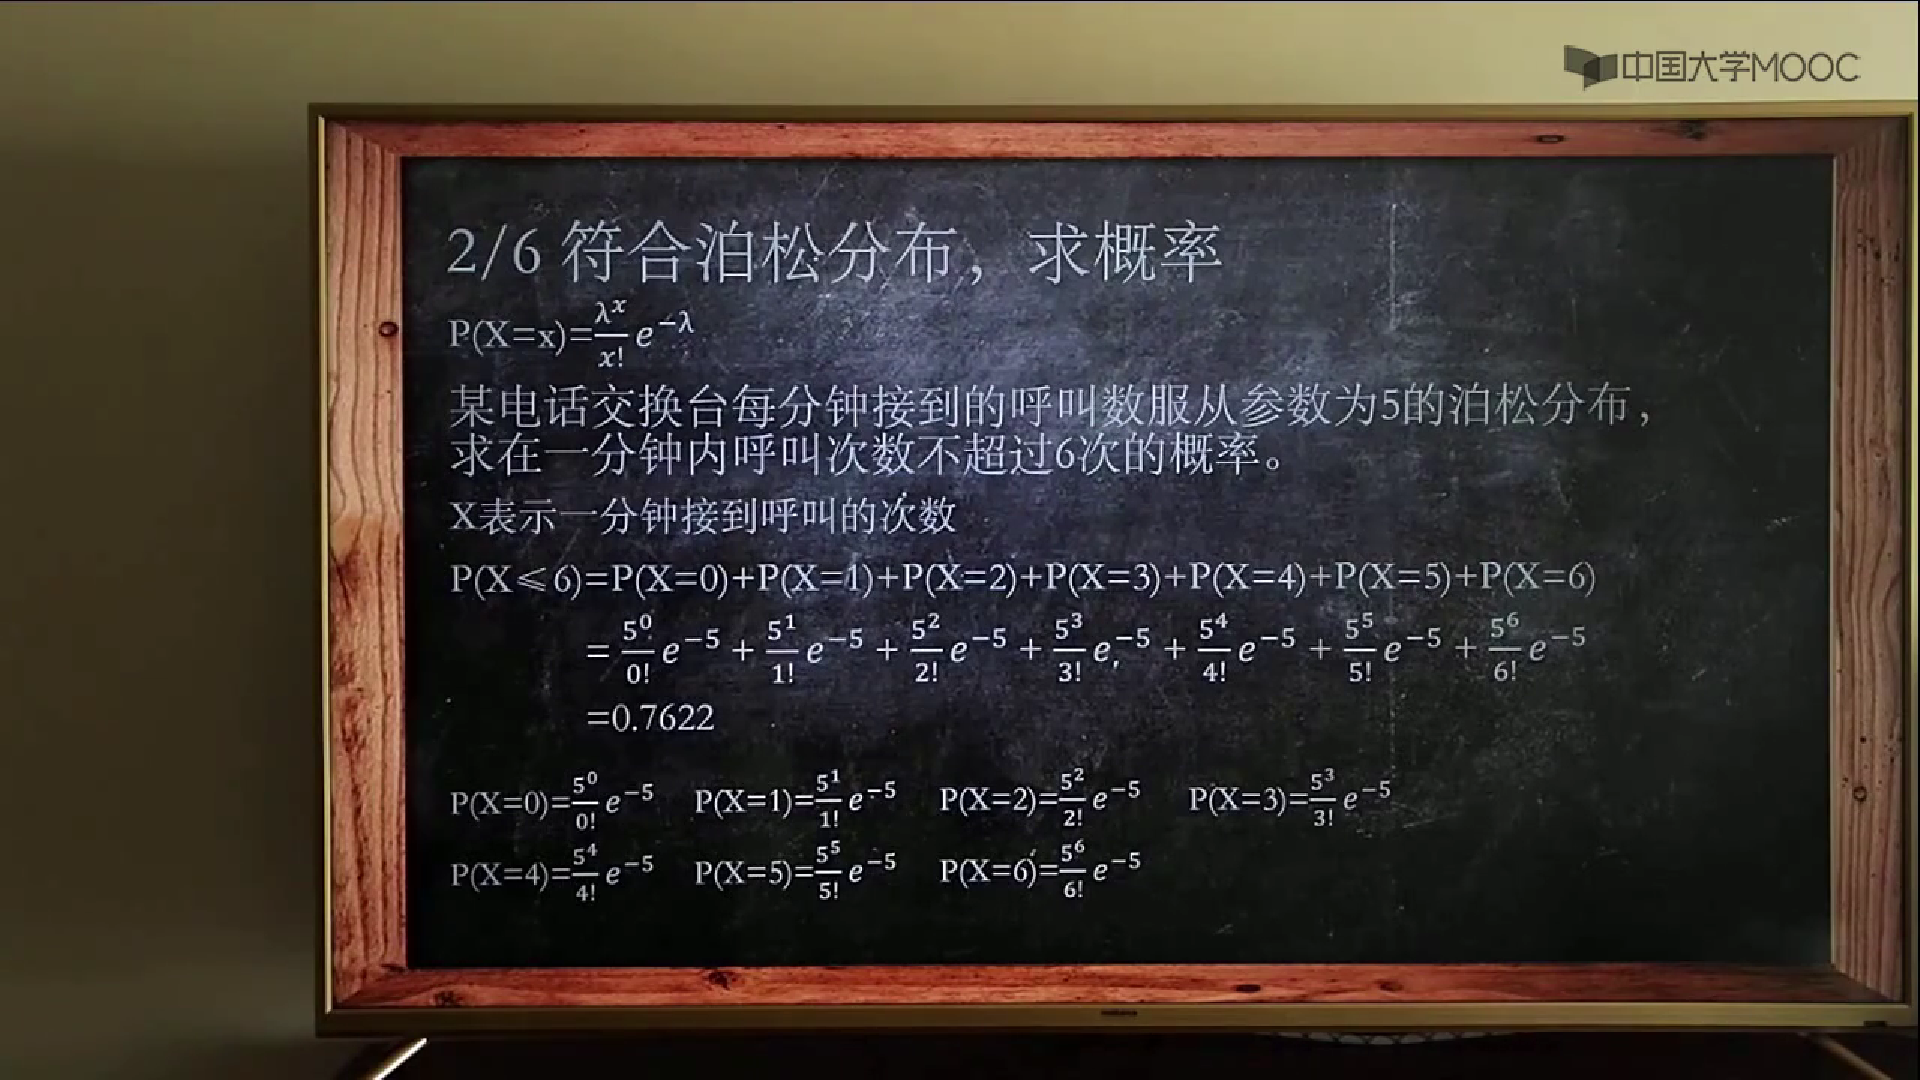 中国大学MOOC
2/6 符合泊松分布，求概率
P(X=x)=\frac{λ^x}{x!}e^{-λ}
某电话交换台每分钟接到的呼叫数服从参数为5的泊松分布，
求在一分钟内呼叫次数不超过6次的概率。
X表示一分钟接到呼叫的次数
P(X⩽6)=P(X=0)+P(X=1)+P(X=2)+P(X=3)+P(X=4)+P(X=5)+P(X=6)
=\frac{5^0}{0!}e^{-5}+\frac{5^1}{1!}e^{-5}+\frac{5^2}{2!}e^{-5}+\frac{5^3}{3!}e^{-5}+\frac{5^4}{4!}e^{-5}+\frac{5^5}{5!}e^{-5}+\frac{5^6}{6!}e^{-5}
=0.7622
P(X=0)=\frac{5^0}{0!}e^{-5} P(X=1)=\frac{5^1}{1!}e^{-5} P(X=2)=\frac{5^2}{2!}e^{-5} P(X=3)=\frac{5^3}{3!}e^{-5}
P(X=4)=\frac{5^4}{4!}e^{-5} P(X=5)=\frac{5^5}{5!}e^{-5} P(X=6)=\frac{5^6}{6!}e^{-5}